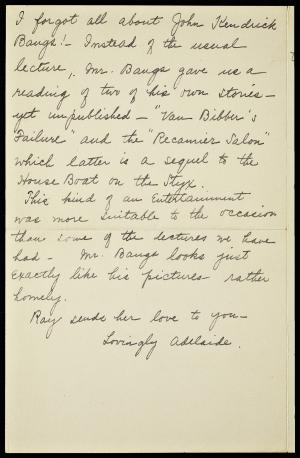 I forgot all about John Kendrick
Bangs!- Instead of the usual
lecture, Mr. Bangs gave us a
reading of two of his own stories-
yet unpublished - "Van Bibber's
Failure" and the "Recamier Salon"
which latter is a sequel to the
House Boat on the Styx.
This kind of an Entertainment
was more suitable to the occasion
than some of the lectures we have
had - Mr. Bangs looks just
exactly like his pictures - rather
homely.
Ray sends her love to you -
Lovingly Adelaide.